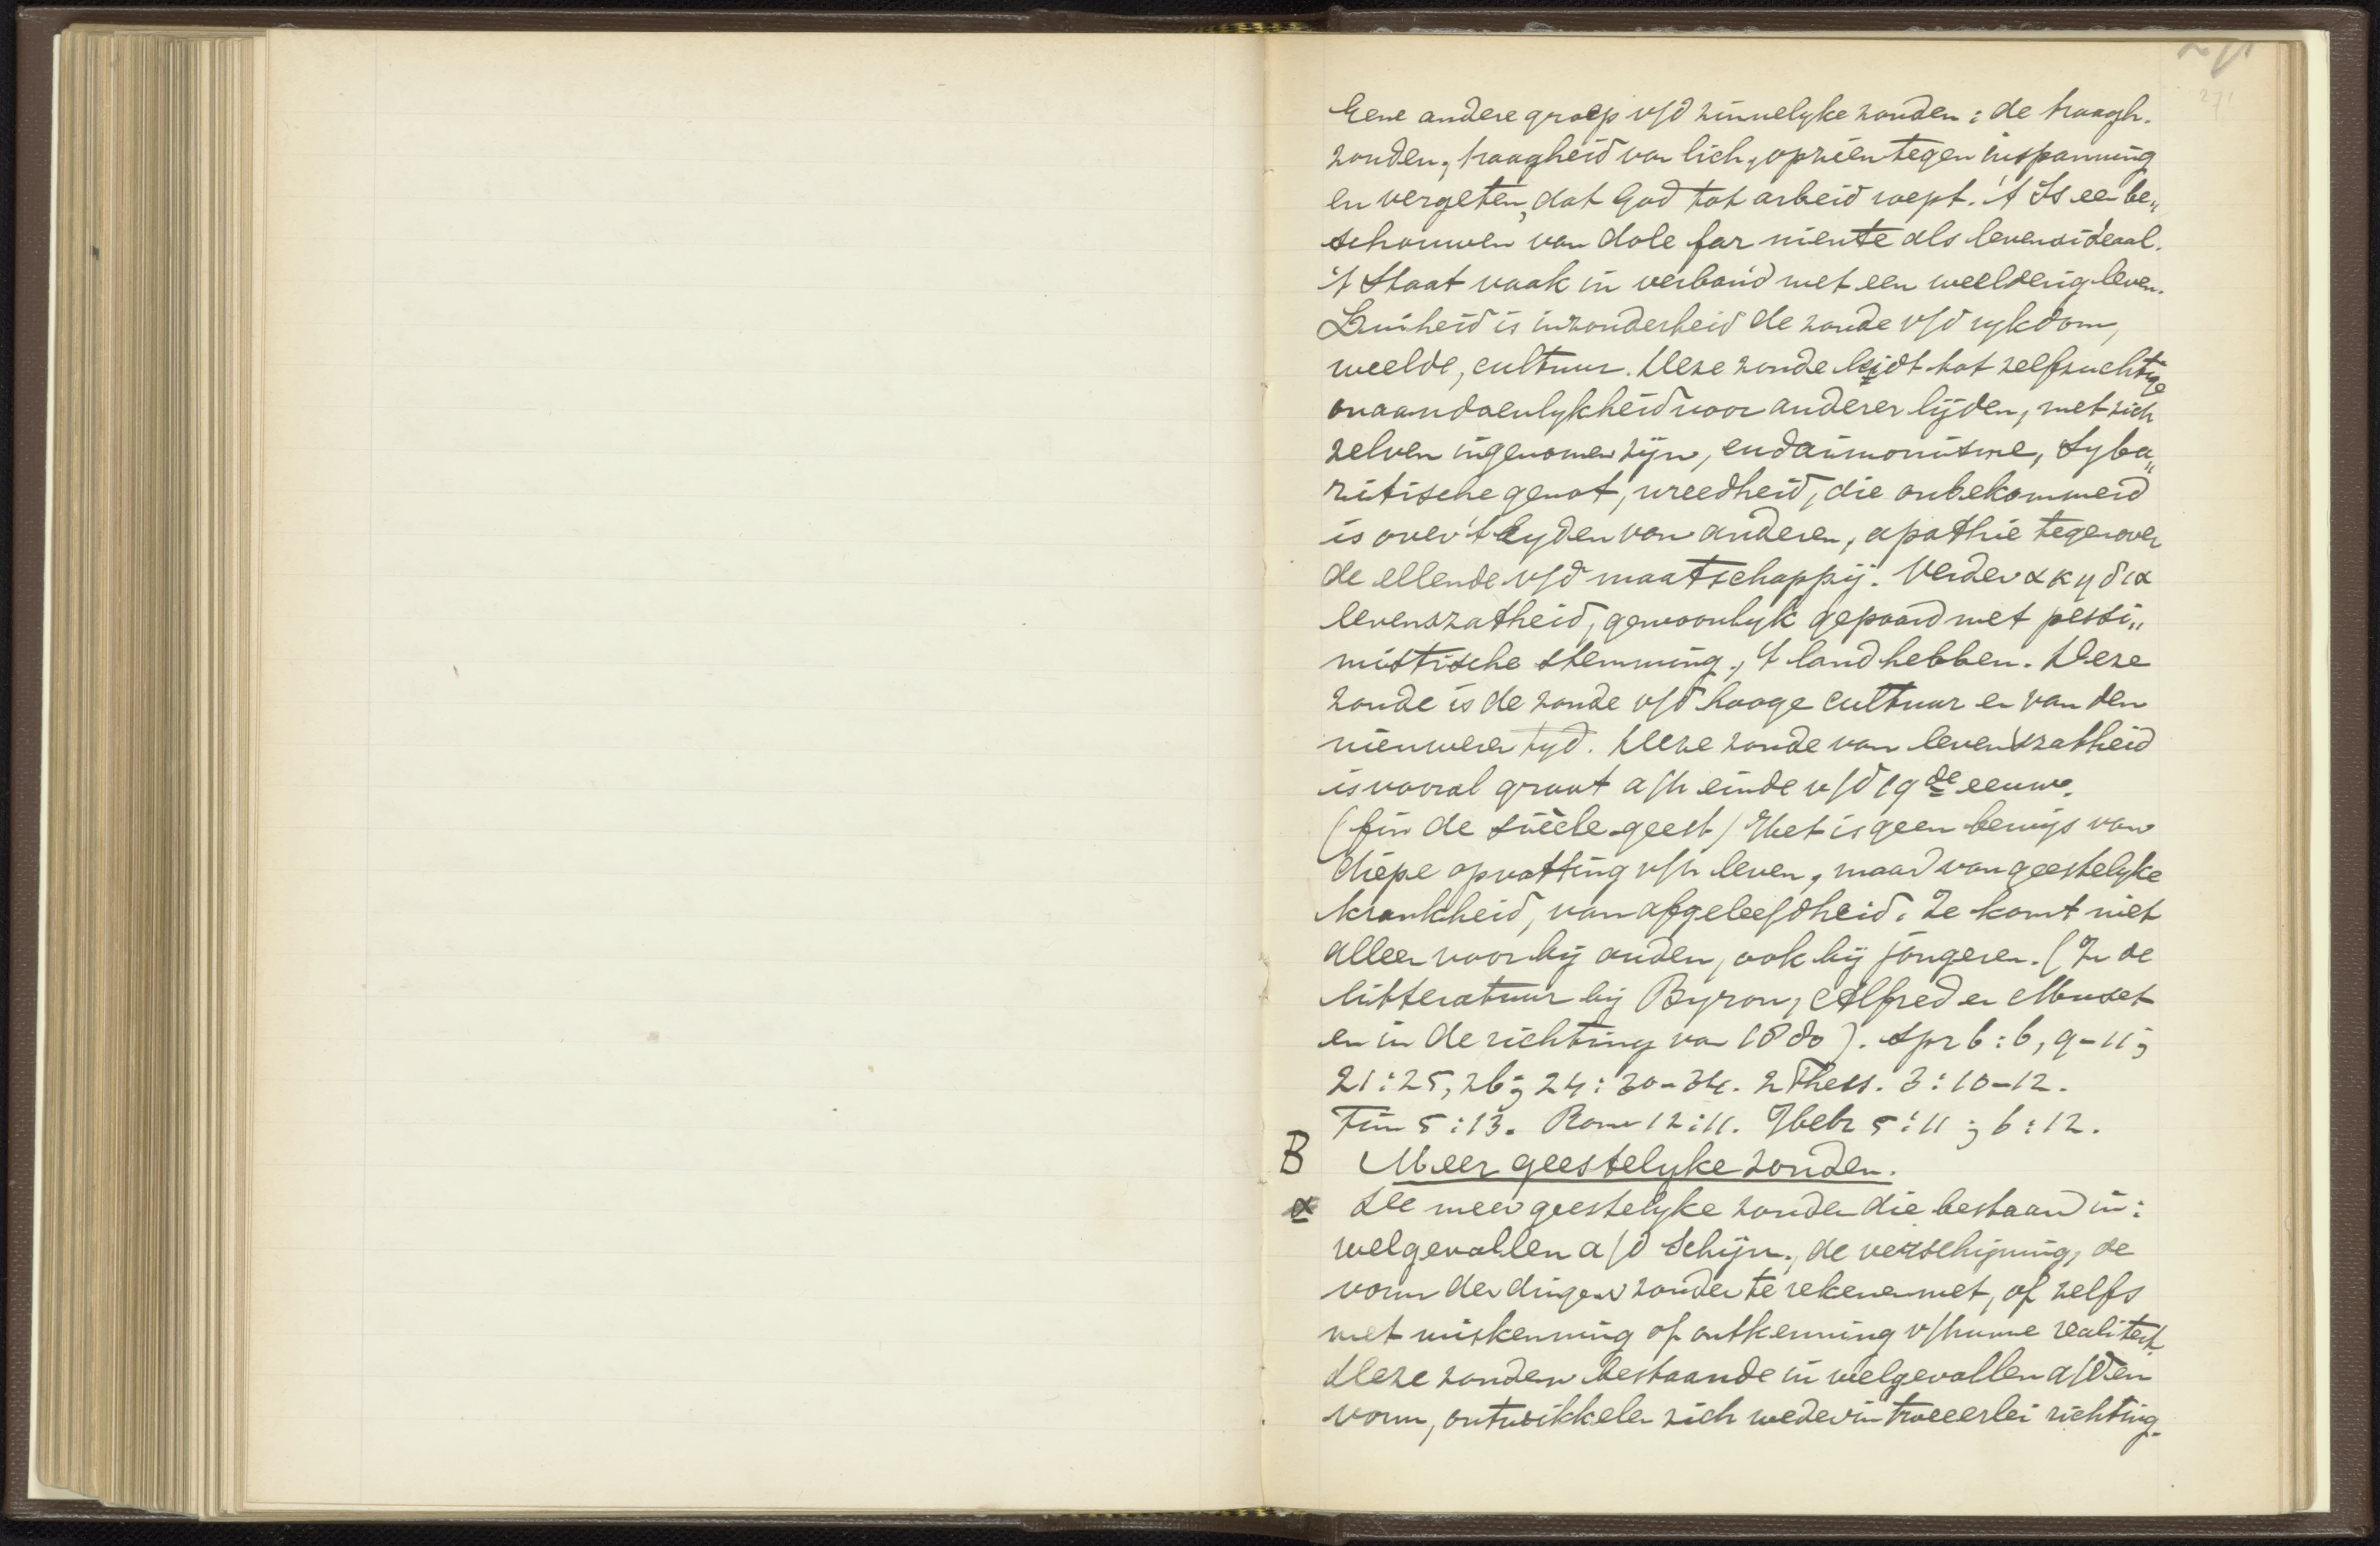 271
271
Eene andere groep v/d zinnelyke zonden: de traagh.
zonden, traagheid van lich, opzien tegen inspanning
en vergeten, dat God tot arbeid roept. 't Is een be„
schouwen van dole far niente als levensideaal.
't Staat vaak in verband met een weelderig leven.
Luiheid is inzonderheid de zonde v/d rykdom,
weelde, cultuur. Deze zonde leidt tot zelfzuchtige
onaandoenlykheid voor anderer lijden, met zich
zelven ingenomen zijn, eudaimonisme, Syba„
ritische genot, wreedheid, die onbekommerd
is over 't lyden van anderen, apathie tegenover
de ellende v/d maatschappij. Verder ακηδια
levenszatheid, gewoonlyk gepaard met pessi„
mistische stemming, 't land hebben. Deze
zonde is de zonde v/d hooge cultuur en van den
nieuweren tyd. Deze zonde van levenszatheid
is vooral groot a/h einde v/d 19de eeuw.
(fin de siècle-geest) Het is geen bewijs van
diepe opvatting v/h leven, maar van geestelyke
krankheid, van afgeleefdheid. Ze komt niet
alleen voor bij ouden, ook bij jongeren. (In de
litteratuur bij Byron, Alfred en Musset
en in de richting van 1880). Spr 6:6, 9-11;
21:25, 26; 24:30-34. 2 Thess. 3:10-12.
Tim 5:13. Rom 12:11. Hebr 5:11; 6:12.
B Meer geestelyke zonden.
α De meer geestelyke zonden die bestaan in:
welgevallen a/d schijn, de verschijning, de
vorm der dingen zonder te rekenen met, of zelfs
met miskenning of ontkenning v/hunne realiteit.
Deze zonden bestaande in welgevallen a/den
vorm, ontwikkelen zich weder in tweeerlei richting.